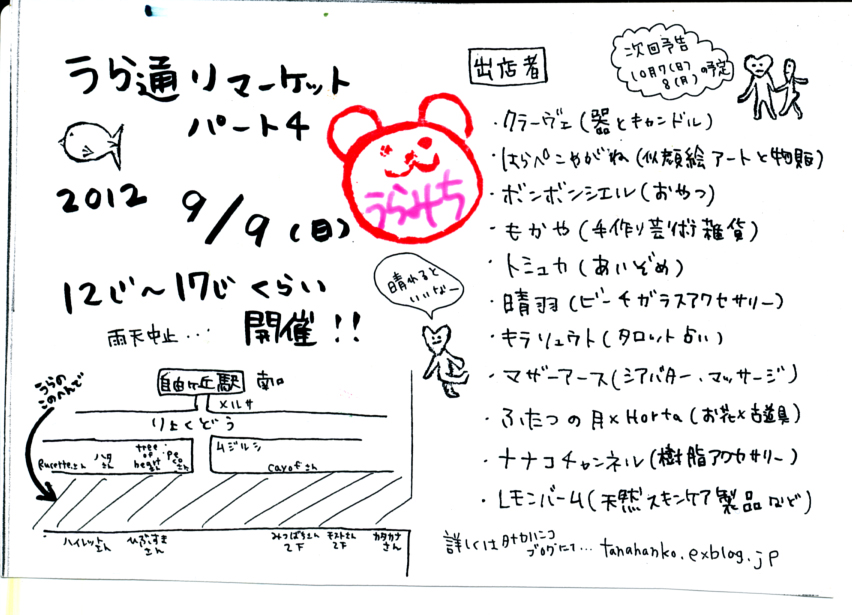 うら通りマーケット
パート4
2012 9/9(日)
12じ〜17じくらい
雨天中止… 開催!!
うらみち
晴れると
いいなー
うらの
このへんで
自由ヶ丘駅 南口
メルサ
りょくどう
ムジルシ
Rusetteさん
ハタさん
tree of heartさん
Pecoさん
cayofさん
ハイレットさん
ひぶすきさん
みつばちさん2F
モストさん2F
カタカナさん
出店者
次回予告
10月7(日)
8(月)の予定
・クラーヴェ(器とキャンドル)
・はらぺこやがね(似顔絵アートと物販)
・ボンボンシエル(おやつ)
・もかや(手作り芸術雑貨)
・トミュカ(あいぞめ)
・晴羽(ビーチガラスアクセサリー)
・キラリュウト(タロット占い)
・マザーアース(シアバター、マッサージ)
・ふたつの月×Horta(お花×古道具)
・ナナコチャンネル(樹脂アクセサリー)
・レモンバーム(天然スキンケア製品など)
詳しくはタナカハンコ
ブログにて… tanahanko.exblog.jp